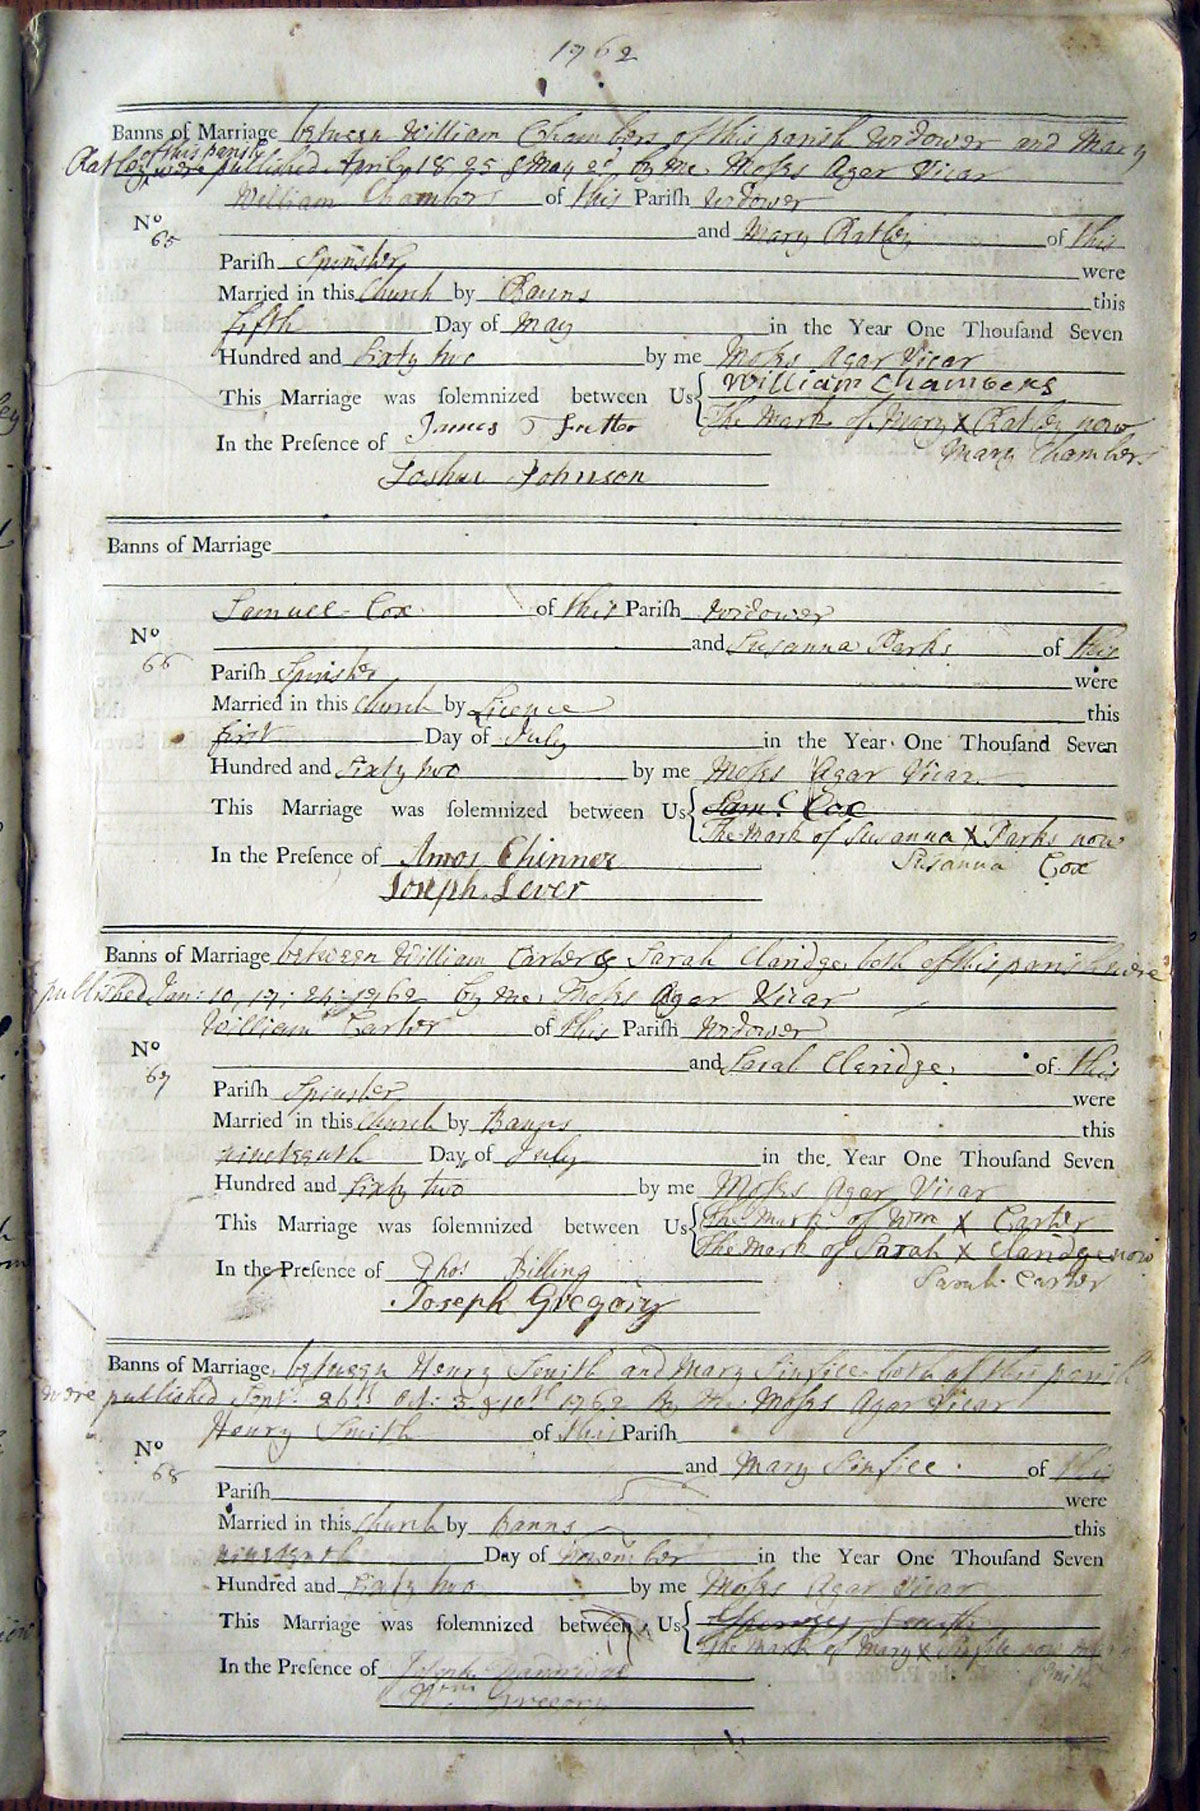 1762
Banns of Marriage between William Chambers of this parish widower and Mary
of this parish
Ratley were published April 18 25 & May 2d, by me, Moses Agar Vicar
William Chambers of this Pariſh widower
No 65
and Mary Ratley of this
Pariſh Spinster were
Married in this Church by Banns this
fifth Day of May in the Year One Thouſand Seven
Hundred and Sixty two by me Moses Agar Vicar
This Marriage was ſolemnized between Us William Chambers
The Mark of Mary X Ratley now
Mary Chambers
In the Preſence of James Futter
Joshua Johnson
Banns of Marriage
Samuel Cox of this Pariſh widower
No 66
and Susanna Parks of this
Pariſh Spinster were
Married in this Church by Licence this
first Day of July in the Year One Thouſand Seven
Hundred and Sixty two by me Moses Agar Vicar
This Marriage was ſolemnized between Us Saml Cox
The Mark of Susanna X Parks now
Susanna Cox
In the Preſence of Amos Chinner
Joseph Lever
Banns of Marriage between William Carter & Sarah Claridge, both of this parish were
published Jan: 10, 17, 24, 1762 by me, Moses Agar Vicar
William Carter of this Pariſh widower
No 67
and Sarah Claridge of this
Pariſh Spinster were
Married in this Church by Banns this
nineteenth Day of July in the Year One Thouſand Seven
Hundred and Sixty two by me Moses Agar Vicar
This Marriage was ſolemnized between Us The Mark of Wm X Carter
The Mark of Sarah X Claridge now
Sarah Carter
In the Preſence of Thos Billing
Joseph Gregory
Banns of Marriage, between Henry Smith and Mary both of this parish
were published Sept: 26th Oct: 3 & 10th 1762 By Me Moses Agar Vicar
Henry Smith of this Pariſh
No 68
and Mary of this
Pariſh were
Married in this Church by Banns this
nineteenth Day of November in the Year One Thouſand Seven
Hundred and Sixty two by me Moses Agar Vicar
This Marriage was ſolemnized between Us Smith
The Mark of Mary X now
Smith
In the Preſence of
Wm Gregory